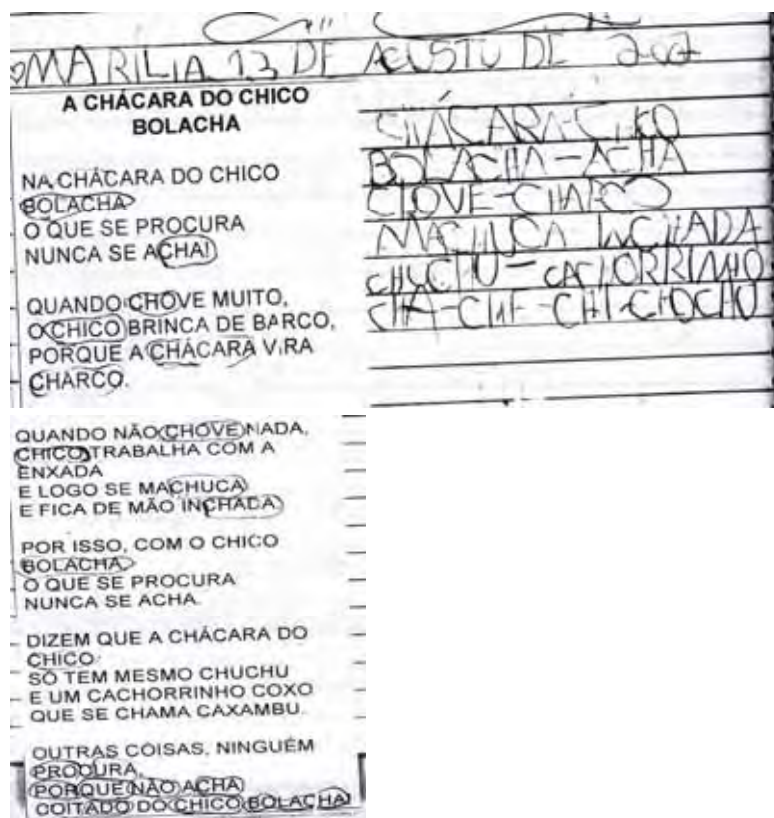 MARILIA 13 DE AGUSTU DE 2007
A CHÁCARA DO CHICO
BOLACHA
NA CHÁCARA DO CHICO
BOLACHA
O QUE SE PROCURA
NUNCA SE ACHA!
QUANDO CHOVE MUITO,
O CHICO BRINCA DE BARCO,
PORQUE A CHÁCARA VIRA
CHARCO.
CHÁCARA-CHICO
BOLACHA-ACHA
CHOVE-CHARCO
MACHUCA INCHADA
CHUCHU-CACHORRINHO
CHA-CHE-CHI-CHOCHU
QUANDO NÃO CHOVE NADA,
CHICO TRABALHA COM A
ENXADA
E LOGO SE MACHUCA
E FICA DE MÃO INCHADA.
POR ISSO, COM O CHICO
BOLACHA
O QUE SE PROCURA
NUNCA SE ACHA.
DIZEM QUE A CHÁCARA DO
CHICO
SÓ TEM MESMO CHUCHU
E UM CACHORRINHO COXO
QUE SE CHAMA CAXAMBU.
OUTRAS COISAS, NINGUÉM
PROCURA,
PORQUE NÃO ACHA
COITADO DO CHICO BOLACHA!